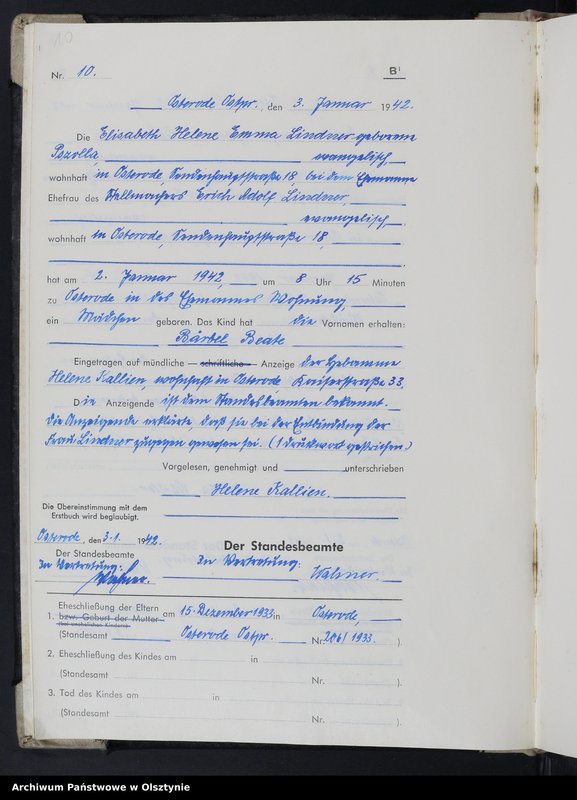 10
Nr. 10. B I
Osterode Ostpr., den 3. Januar 1942.
Die Elisabeth Helene Emma Lindner geborene
evangelisch
wohnhaft in Osterode, Sendenhauptstraße 18, bei dem Ehemanne
Ehefrau des Stellmachers Erich Adolf Lindner,
evangelisch,
wohnhaft in Osterode, Sendenhauptstraße 18,
hat am 2. Januar 1942, um 8 Uhr 15 Minuten
zu Osterode in des Ehemannes Wohnung,
ein Mädchen geboren. Das Kind hat die Vornamen erhalten:
Bärbel Beate
Eingetragen auf mündliche — schriftliche — Anzeige der Hebamme
Helene Kallien, wohnhaft in Osterode Kaiserstraße 33.
Die Anzeigende ist dem Standesbeamten bekannt.
Die Anzeigende erklärte, daß sie bei der Entbindung der
Frau Lindner zugegen gewesen sei. (1 Druckwort gestrichen.)
Vorgelesen, genehmigt und unterschrieben
Helene Kallien.
Die Übereinstimmung mit dem
Erstbuch wird beglaubigt.
Osterode, den 3.1. 1942.
Der Standesbeamte
In Vertretung:
Der Standesbeamte
In Vertretung:
1. Eheschließung der Eltern
bzw. Geburt der Mutter am 15. Dezember 1933 in Osterode,
(bei unehelichen Kindern)
(Standesamt Osterode Ostpr. Nr. 206/1933. ).
2. Eheschließung des Kindes am in
(Standesamt Nr. ).
3. Tod des Kindes am in
(Standesamt Nr. ).
Archiwum Państwowe w Olsztynie